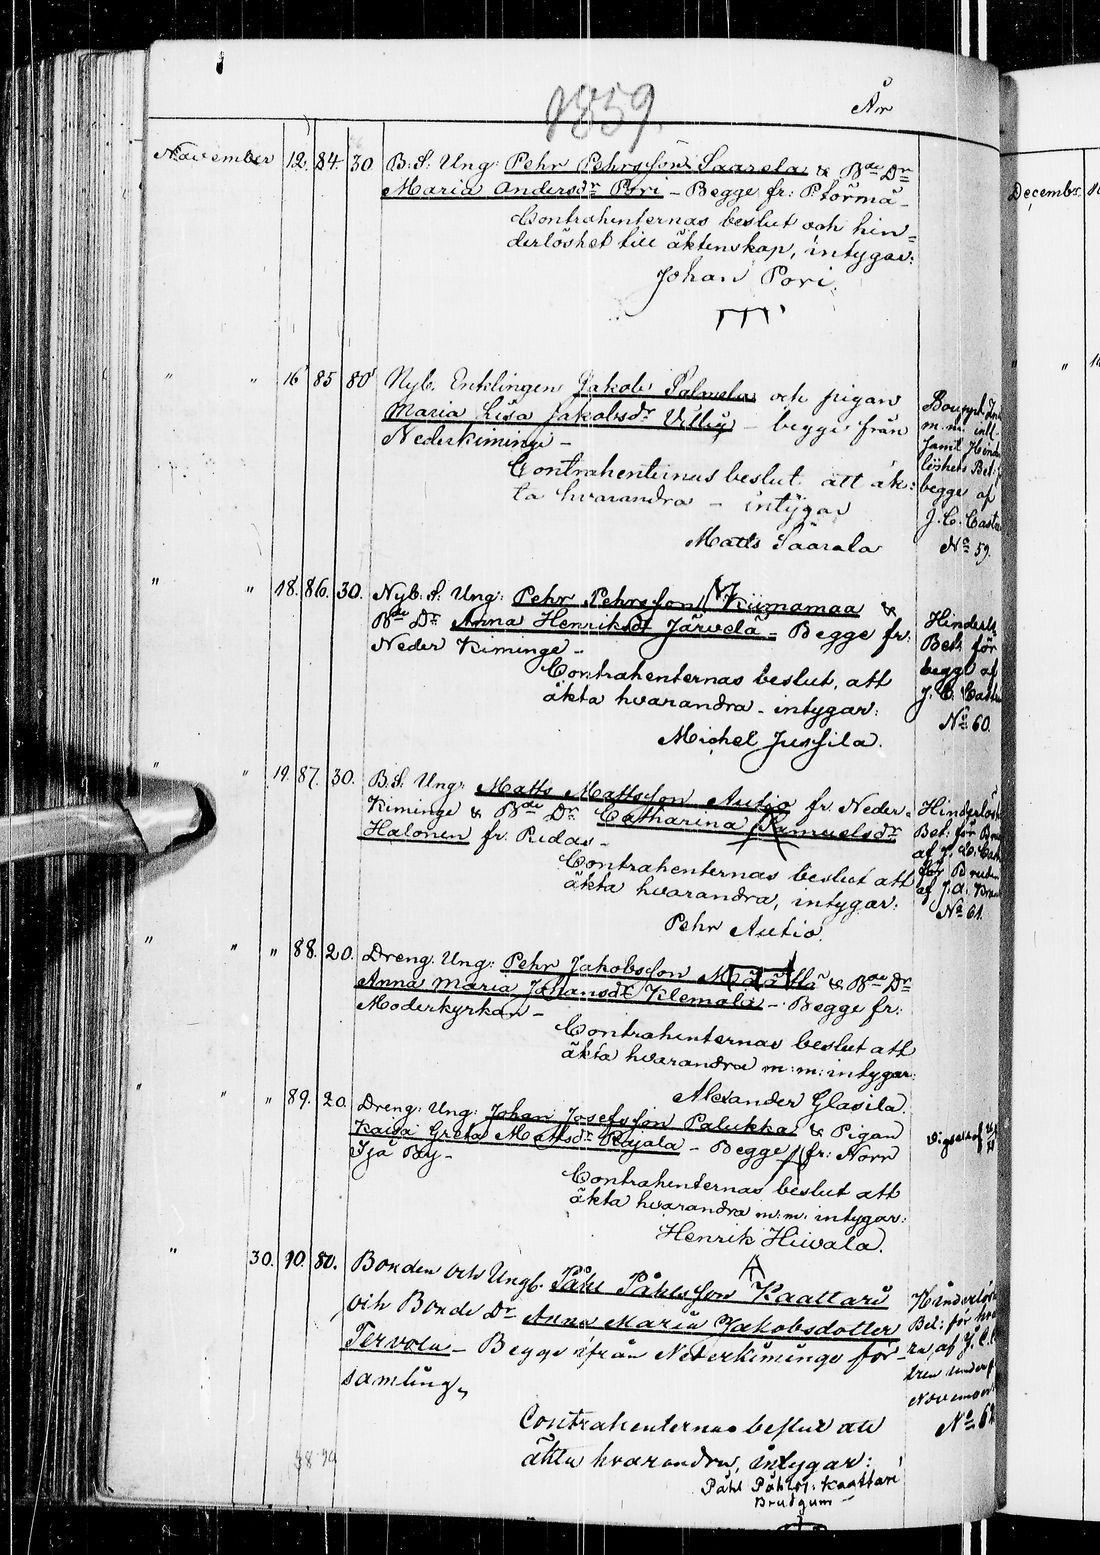 1859.
År
November 12. 84. 30 B: S: Ung: Pehr Pehrsson Saarela & Bde Dr
Maria Andersdr Pori – Begge fr: P. Törmä –
Contrahenternas beslut och hin=
derlöshet till äktenskap, intygar:
Johan Pori.
" " 16 85 80 Nyb. Enklingen Jakob Palmela och pigan
Maria Lisa Jakobsdr – begge från
Nederkiminge –
Contrahenternas beslut att äk=
ta hvarandra – intygar
Matts Saarala
m. m. intl.
Bet:
begge af
J. C.
No 59.
" " 18. 86. 30. Nyb: S: Ung: Pehr Pehrsson Kiimamaa &
Bde Dr Anna Henriksdr Järvelä = Begge fr:
Neder Kiminge –
Contrahenternas beslut, att
äkta hvarandra – intygar:
Michel Jussila.
Bet: för
begge af
J. C.
No 60.
" " 19. 87. 30. B. S. Ung: Matts Mattsson Autio fr. Neder=
Kiminge & Bde Dr Catharina Samuelsdr
Halonen fr. Pudas –
Contrahenternas beslut att
äkta hvarandra, intygar:
Pehr Autio.
Bet: för
af J. C.
för Bruden
af J. A.
No 61.
" " " 88. 20. Dreng: Ung: Pehr Jakobsson Määttä & Bde Dr
Anna Maria Johansdr Klemola – Begge fr:
Moderkyrkan –
Contrahenternas beslut att
äkta hvarandra m: m: intygar:
Alexander Glasila.
" " " 89. 20. Dreng: Ung: Johan Josefsson Palukka & Pigan
Kaisa Greta Mattsdr Rajala – Begge fr: Norr
Ijå By –
Contrahenternas beslut att
äkta hvarandra m: m: intygar:
Henrik Hiivala.
" 30. 90. 80. Bonden och Ungk. Påhl Påhlsson Kaattari
och Bonde Dr Anna Maria Jakobsdotter
Tervola – Begge ifrån Nederkiminge för=
samling,
Contrahenternas beslut att
äkta hvarandra, intygar:
Påhl Påhlss: Kaattari
Brudgum –
Bet: för
af J. C.
November
No 62
Decembr.